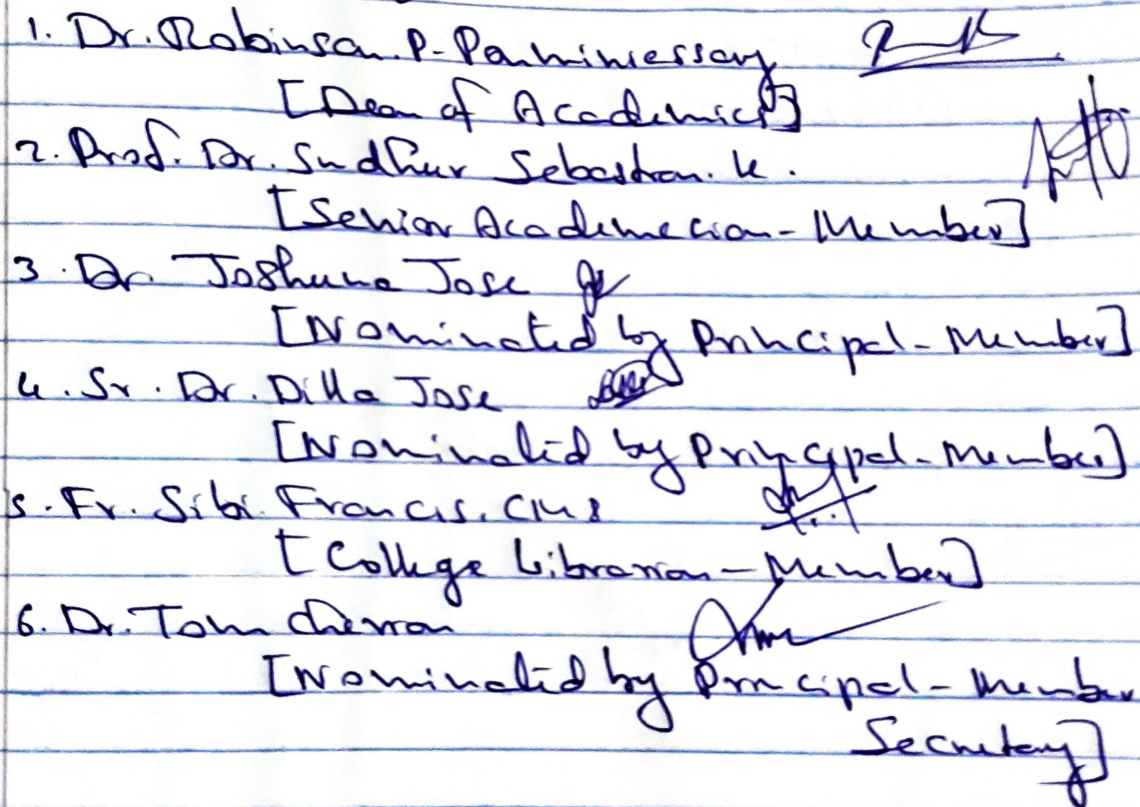 1. Dr. Robinson. P. Ponminiessery
[Dean of Academics]
2. Prof. Dr. Sudhir Sebastian. K.
[Senior Academecian - Member]
3. Dr. Joshuna Jose
[Nominated by Principal - Member]
4. Sr. Dr. Dilla Jose
[Nominated by Principal - Member]
5. Fr. Sibi Francis. CMI
[College Librarian - Member]
6. Dr. Tom Cherian
[Nominated by Principal - Member
Secretary]